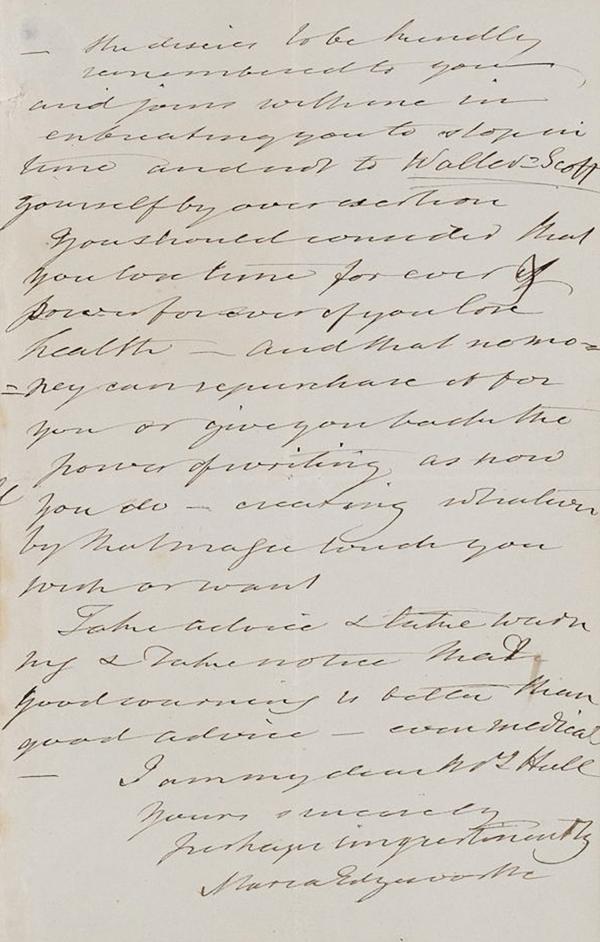 — She desires to be kindly
remembered to you
and joins with me in
entreating you to stop in
time and not to Walter = Scott
yourself by over exertion
You should consider that
you lose time for ever &
power for ever if you lose
health — and that no mo=
=ney can repurchase it for
you or give you back the
power of writing as now
you do — creating whatever
by that magic touch you
wish or want
Take advice & take warn
ing & Take notice that
good warning is better than
good advice — even medical
— I am my dear Mrs Hall
Yours sincerely
perhaps impertinently
Maria Edgeworth